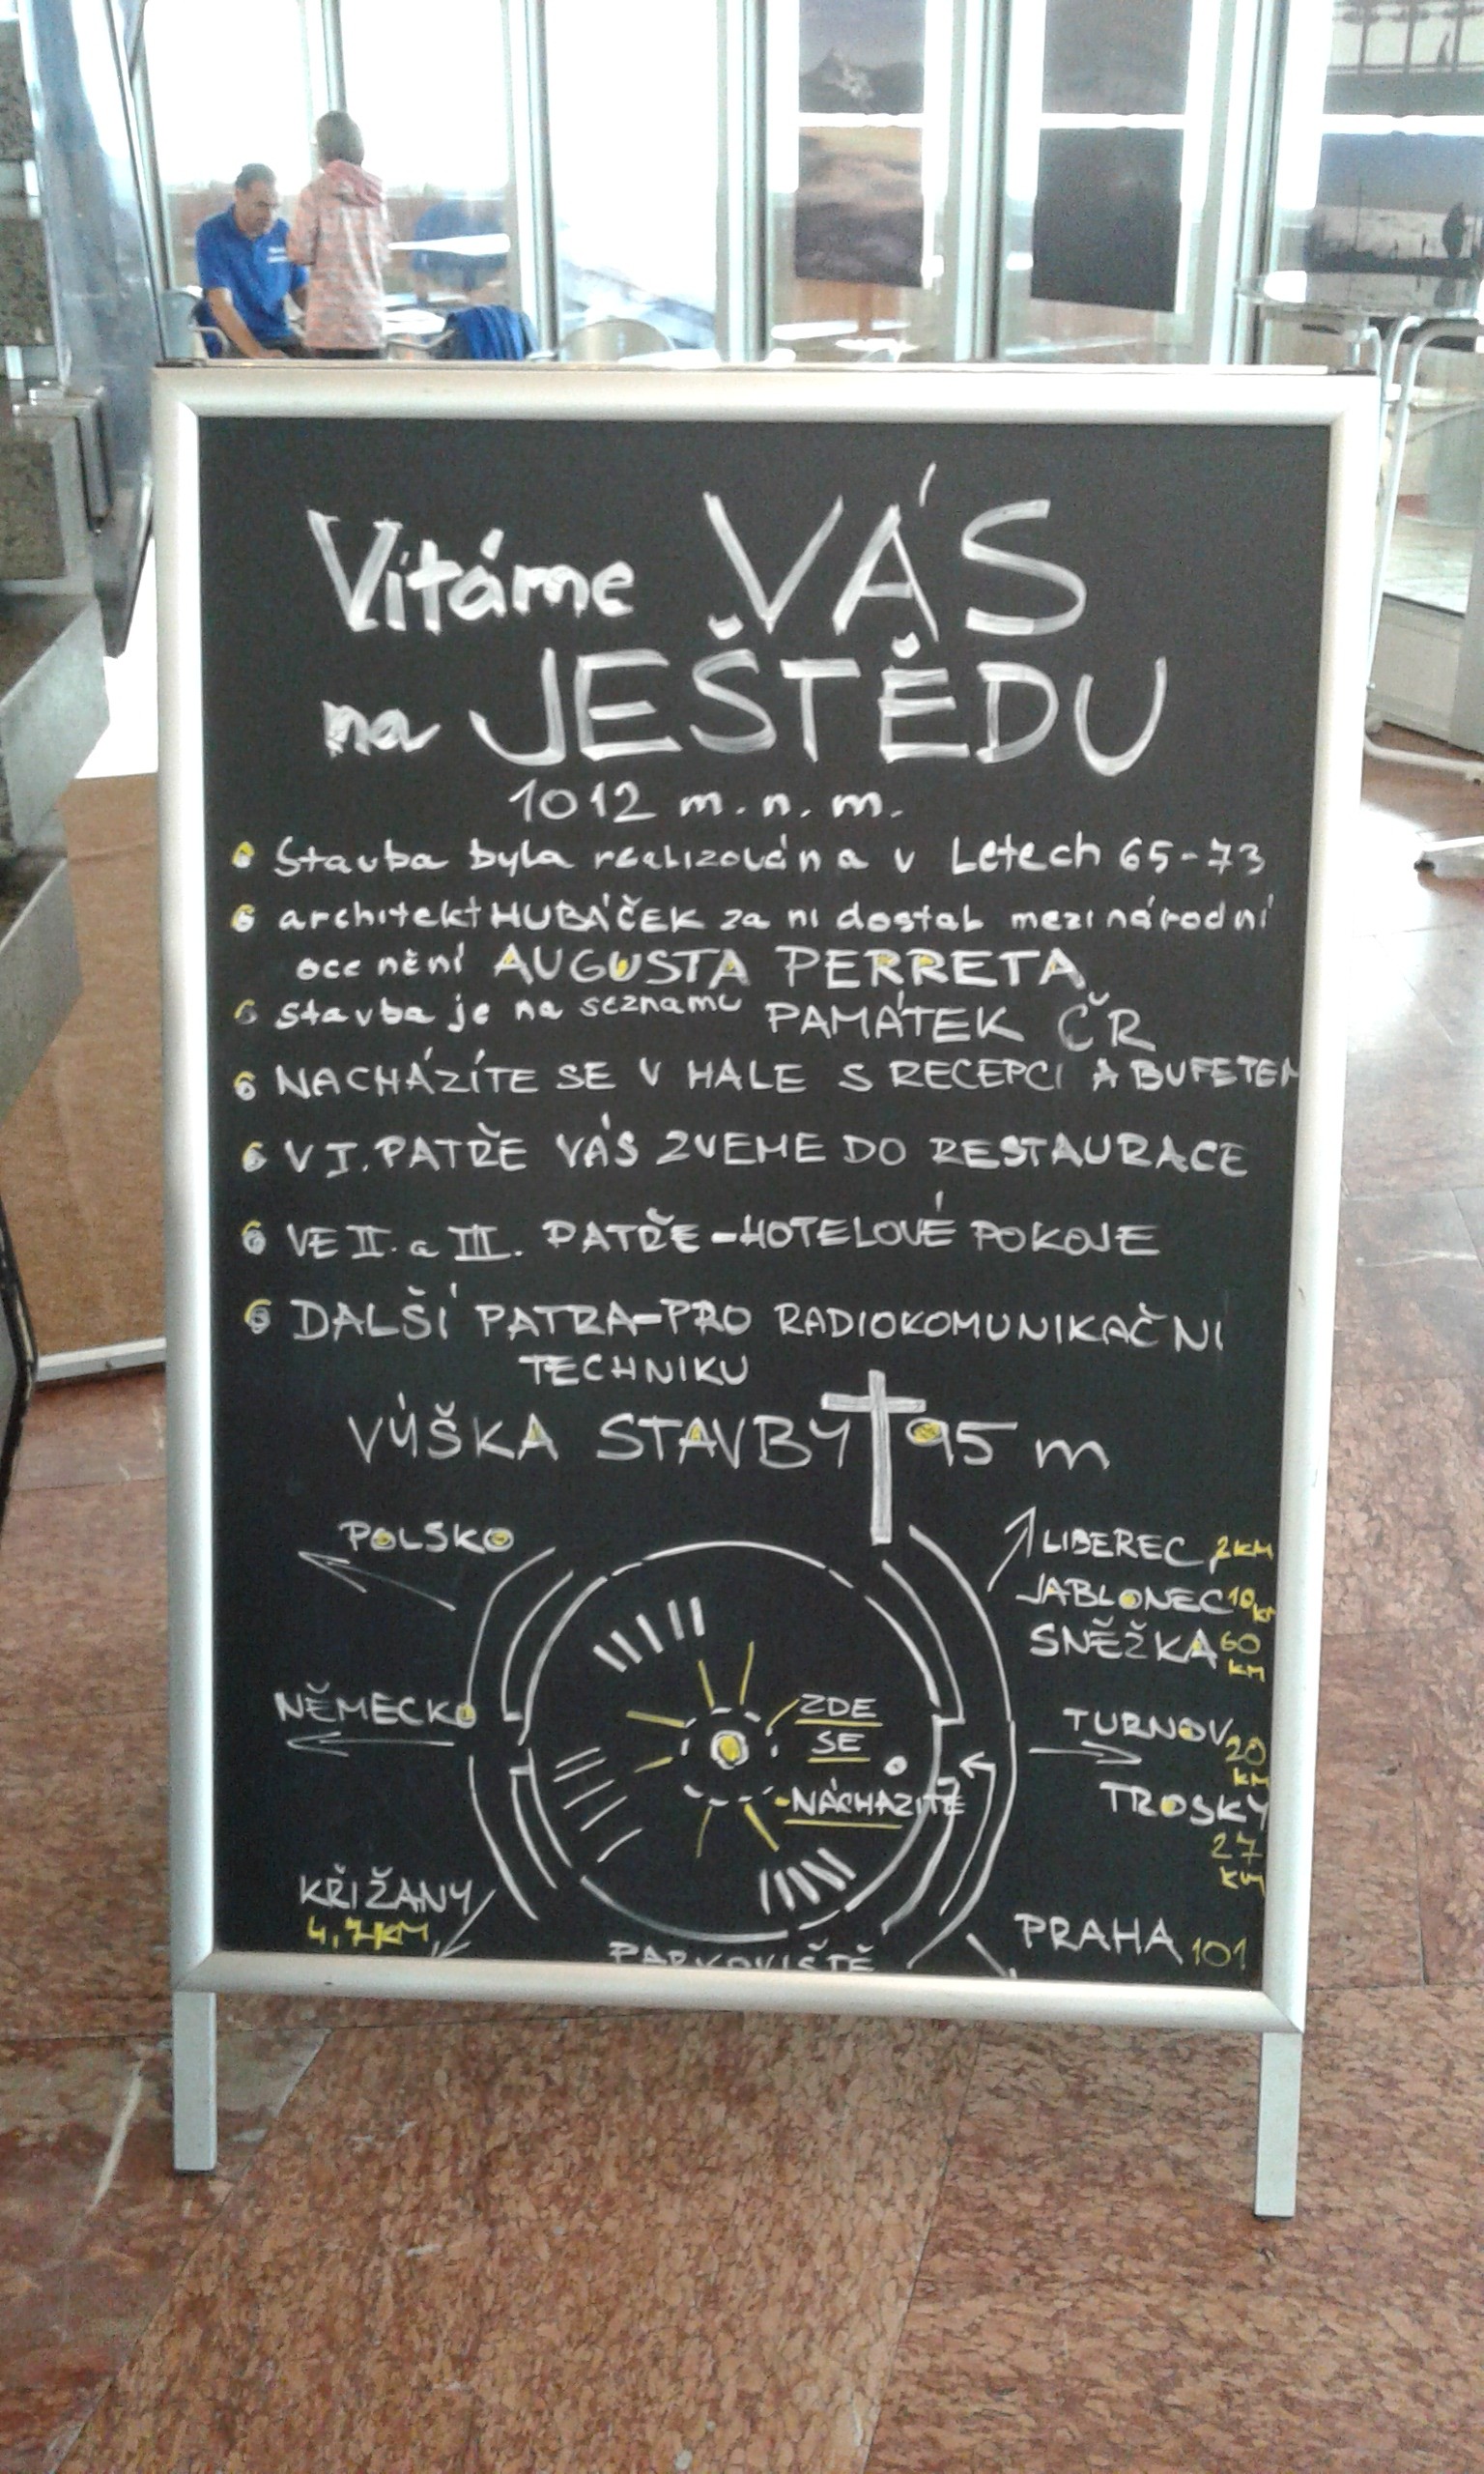 Vítáme VÁS
na JEŠTĚDU
1012 m. n. m.
Stavba byla realizována v Letech 65-73
architekt HUBÁČEK za ní dostal mezinárodní
ocenění AUGUSTA PERRETA
Stavba je na seznamu PAMÁTEK ČR
NACHÁZÍTE SE V HALE S RECEPCÍ A BUFETEM
V I. PATŘE VÁS ZVEME DO RESTAURACE
VE II. a III. PATŘE - HOTELOVÉ POKOJE
DALŠÍ PATRA - PRO RADIOKOMUNIKAČNí
TECHNIKU
VÝŠKA STAVBY 95 m
POLSKO
LIBEREC 2 KM
JABLONEC 10 KM
SNĚŽKA 60 KM
NĚMECKO
ZDE
SE
NÁCHÁZÍTE
TURNOV 20 KM
TROSKY
27 KM
KŘIŽANY
4,7 KM
PARKOVIŠTĚ
PRAHA 101